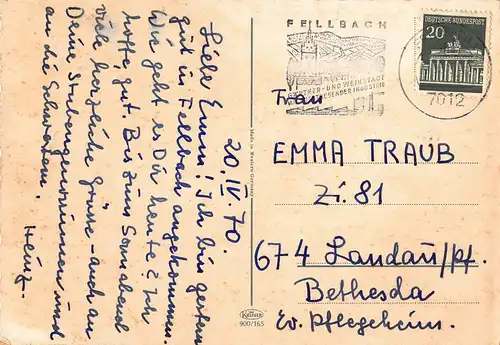 20. IV. 70.
Liebe Emm! Ich bin gestern
gut in Fellbach angekommen.
Wie geht es Dir heute? Ich
hoffe, gut. Bis zum Sonnabend
viele herzliche Grüsse - auch an
Deine Stubengenossinnen und
an die Schwestern.
Heinz.
FELLBACH
GÄRTNER- UND WEINSTADT
DEUTSCHE BUNDESPOST
20
7012
Frau
EMMA TRAUB
Zi. 81
674 Landau/Pf.
Bethesda
Ev. Pflegeheim.
Made in Western Germany
Krüger
900/165